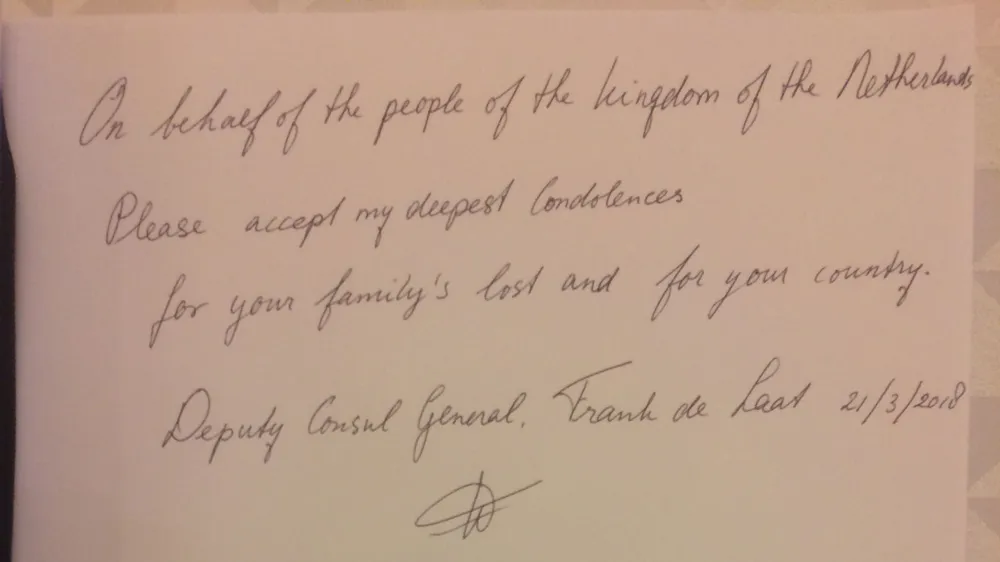 On behalf of the people of the kingdom of the Netherlands
Please accept my deepest Condolences
for your family's lost and for your country.
Deputy Consul General. Frank de Laat 21/3/2018